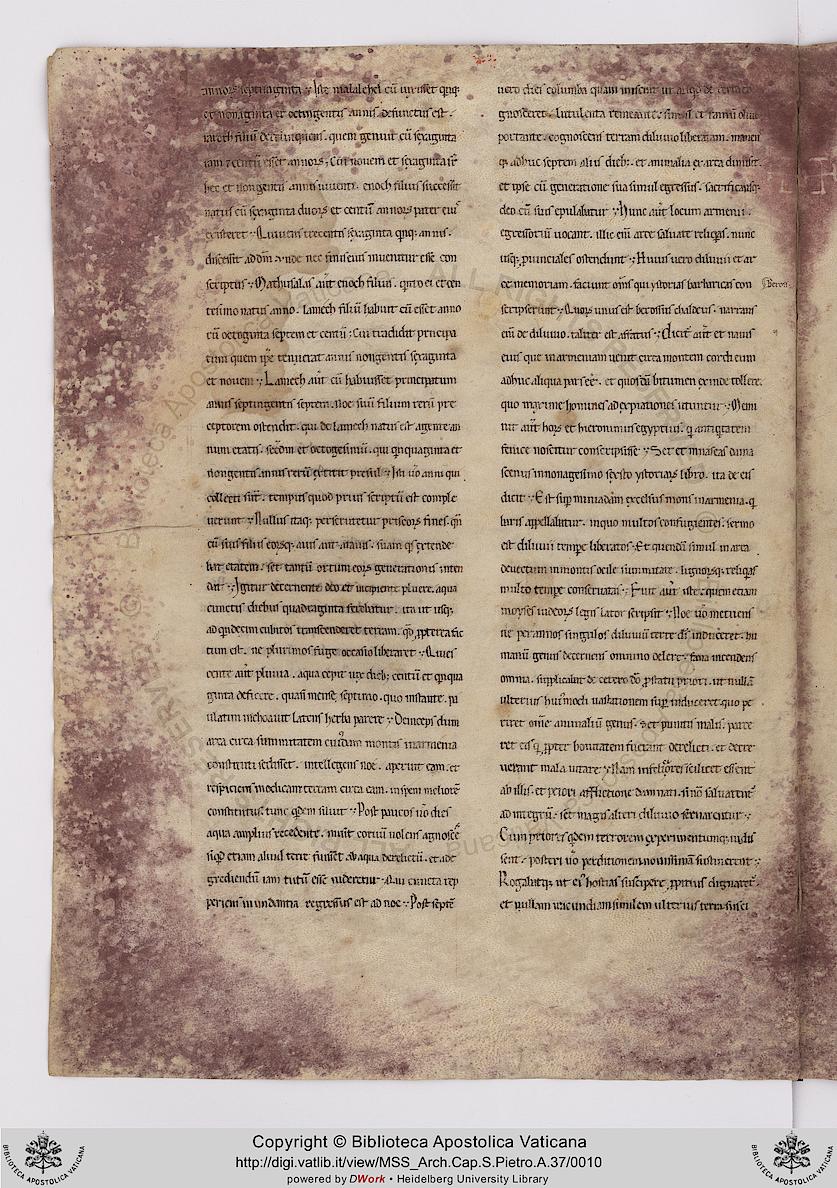 annoꝝ septuaginta ⁊ Iste malalehel cū uixisset quinq;
et nonaginta et octingentis annis. defunctus est.
iareth filiū derelinquens. quem genuit cū sexaginta
centū esset annoꝝ
hic et nongentis annis uiuenti. enoch filius successit
natus cū sexaginta duoꝝ et centū annoꝝ pater eius
existeret. Qui uiuens trecentis sexaginta quinq; annis.
discessit ad dm̄. unde nec finis eius inuenitur esse con
scriptus. Mathusalas aūt enoch filius.
tesimo natus anno. lamech filiū habuit cū esset anno
rū octoginta septem et centū. Cui tradidit principa
tum quem ip̄e tenuerat annis nongentis sexaginta
et nouem. Lamech aūt cū habuisset principatum
annis septingentis septem. noe suū filium rerū pre
ceptorem ostendit. qui de lamech natus est agente an
num etatis. sc̄dm et octogesimū. qui quinquaginta et
nongentis annis rerū extitit presul. Isti uō anni qui
collecti sūt. tempus quod prius scriptū est comple
uerunt. Nullus itaq; perscrutetur priscoꝝ fines. qm̄
cū suis filiis eoꝝq; suam extende
bāt etatem. set tantū ortum eoꝝ generationis inten
dat. Igitur decernente deo et incipiente pluere. aqua
cunctis diebus quadraginta ferebatur. ita ut usq;
ad quindecim cubitos transcenderet terram. qd̄ ppterea fac
tum est. ne plurimos fuge occasio liberaret. Quies
cente aūt pluuia. aqua cepit uix dieb; centū et qnqua
ginta deficere. quasi mense septimo. quo instante. pa
ulatim inchoauit latens herba parere. Deinceps dum
arca circa summitatem cuiusdam montis in armenia
constituti sedisset. intellegens noe. aperuit eam. et
respiciens modicam terram circa eam. in spem meliorē
constitutus. tunc qdem siluit. Post paucos uō dies
aqua amplius recedente. misit coruū uolens agnoscē
si qd etiam aliud terre fuisset ab aqua derelictū. et ad e
grediendū iam tutū esse uideretur. Qui cuncta rep
periens inundantia regressus est ad noe. Post septē
uero dies columba quam miserat
gnosceret. lutulenta remeante. simul et ramū oliue
portante. cognoscens terram diluuio liberatam. manen
adhuc septem aliis dieb;. et animalia ex arca dimisit.
et ipse cū generatione sua simul egressus. sacrificansq;
deo cū suis epulabatur. Hunc aūt locum armenii.
egressoriū uocant. illic eni arce saluate reliqas. nunc
usq; puinciales ostendunt. Huius uero diluuii et ar
ce memoriam. faciunt om̄s qui ystorias barbaricas con
scripserunt. Quoꝝ unus est berossus chaldeus. narrans
eni de diluuio. taliter est affatus. Dicit aūt et nauis
eius que in armeniam uenit circa montem cordieum
adhuc aliqua pars eē. et quosdā bitumen exinde tollere.
quo maxime homines ad expiationes utuntur. Memi
nit aūt hoꝝ et hieronimus egyptius. q antiquitatem
fenice noscitur conscripsisse. Set et mnaseas dama
scenus in nonagesimo sexto ystoriaꝝ libro. ita de eis
dicit. Est sup miniadam excelsus mons in armenia. q
baris appellabitur. in quo multos confugientes. sermo
est diluuii tempe liberatos. Et quendā simul in arca
deuectum in montis ocile summitate. lignoꝝq; reliqas
multo tempe conseruatas. Fuit aūt iste. quem etiam
moyses iudeoꝝ legis lator scripsit. Noe uō metuens
ne per annos singulos diluuiū terre ds̄ induceret. hu
manū genus decernens omnino delere. sacra incendens
omnia. supplicabat de cetero dō priori. ut nullā
ulterius huiusmodi uastationem sup induceret. quo pe
riret om̄e animaliū genus. Set punitis malis. parce
ret eis q ppter bonitatem fuerant derelicti. et decre
uerant mala uitare. Nam infeliciores scilicet essent
ab illis. et priori afflictione damnari. si nō saluarent̄
ad integrū. set magis alteri diluuio seruarentur.
Cum priores qdem terrorem experimentumq; uidis
sent. posteri uō perditionem nouissimam sustinerent.
Rogabatq; ut eius hostias suscipere ppitius dignaret̄.
et nullam iracundiam similem ulterius terra suscı
Berosi
Copyright © Biblioteca Apostolica Vaticana
http://digi.vatlib.it/view/MSS_Arch.Cap.S.Pietro.A.37/0010
powered by DWork • Heidelberg University Library